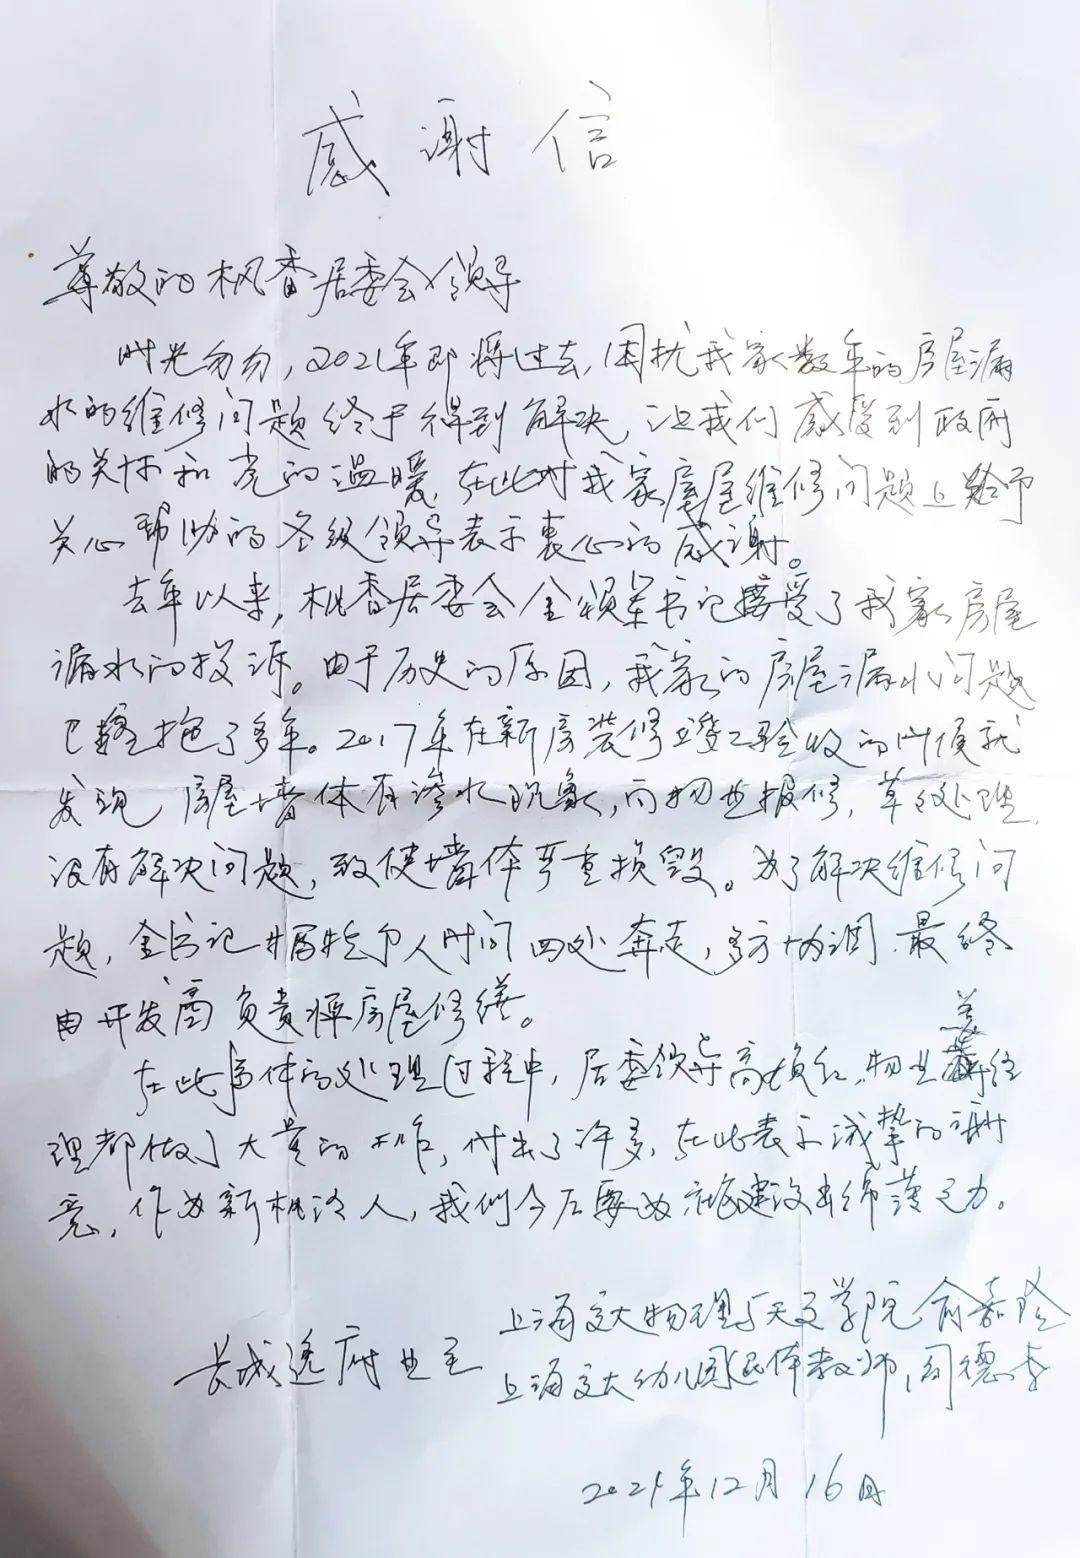 感谢信
尊敬的枫香居委会领导
时光匆匆，2021年即将过去，困扰我家数年的房屋漏
水的维修问题终于得到解决，让我们感受到政府
的关怀和党的温暖，在此对我家房屋维修问题上给予
关心帮助的各级领导表示衷心的感谢。
去年以来，枫香居委会金书记接受了我家房屋
漏水的投诉。由于历史的原因，我家的房屋漏水问题
已拖了多年。2017年在新房装修竣工验收的时候就
发现房屋墙体有渗水现象，向物业报修，草草处理，
没有解决问题，致使墙体严重损毁。为了解决维修问
题，金书记牺牲个人时间四处奔走，多方协调，最终
由开发商负责将房屋修缮。
在此事体的处理过程中，居委领导高，物业姜经
理都做了大量的工作，付出了许多，在此表示诚挚的谢
意，作为新枫泾人，我们今后要为社区建设出绵薄之力。
上海交大物理与天文学院俞嘉隆
长城逸府业主
上海交大幼儿园退休教师，周德
2021年12月16日